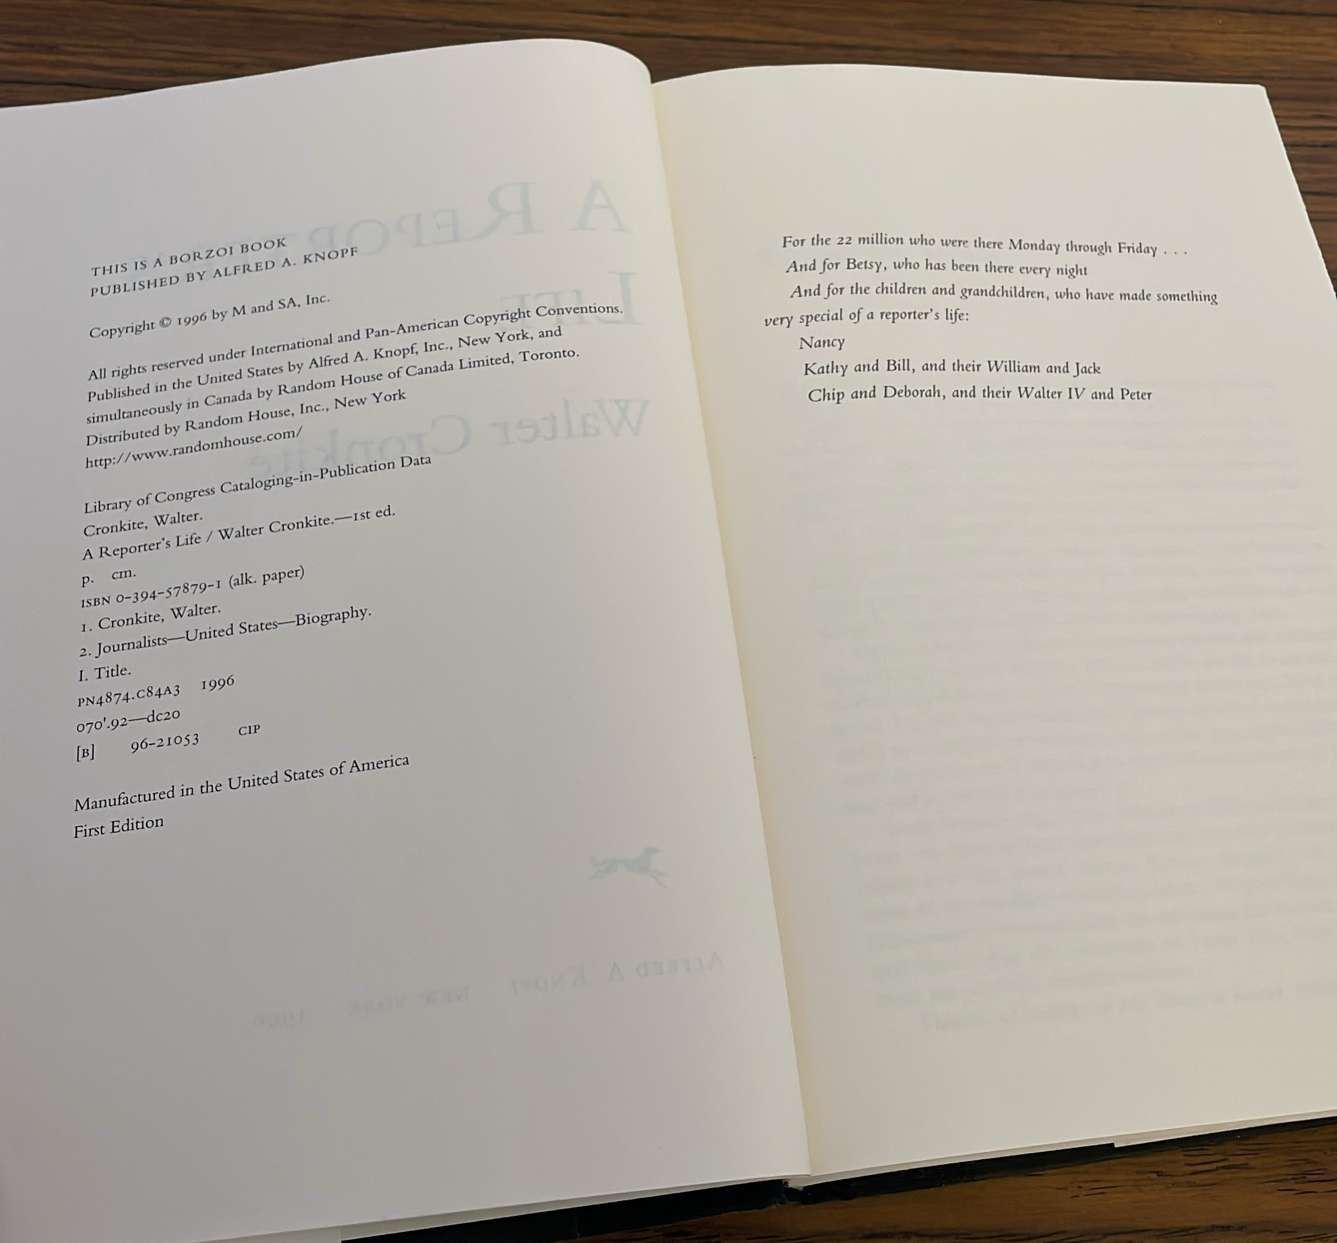 THIS IS A BORZOI BOOK
PUBLISHED BY ALFRED A. KNOPF
Copyright © 1996 by M and SA, Inc.
All rights reserved under International and Pan-American Copyright Conventions.
Published in the United States by Alfred A. Knopf, Inc., New York, and
simultaneously in Canada by Random House of Canada Limited, Toronto.
Distributed by Random House, Inc., New York
http://www.randomhouse.com/
Library of Congress Cataloging-in-Publication Data
Cronkite, Walter.
A Reporter's Life / Walter Cronkite.—1st ed.
p. cm.
ISBN 0-394-57879-1 (alk. paper)
1. Cronkite, Walter.
2. Journalists—United States—Biography.
I. Title.
PN4874.C84A3 1996
070'.92—dc20
[B] 96-21053 CIP
Manufactured in the United States of America
First Edition
For the 22 million who were there Monday through Friday . . .
And for Betsy, who has been there every night
And for the children and grandchildren, who have made something
very special of a reporter's life:
Nancy
Kathy and Bill, and their William and Jack
Chip and Deborah, and their Walter IV and Peter